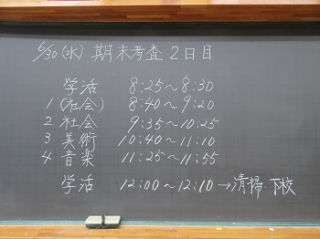 6/30(水) 期末考査2日目
学活 8:25～8:30
1(社会) 8:40～9:20
2 社会 9:35～10:25
3 美術 10:40～11:10
4 音楽 11:25～11:55
学活 12:00～12:10→清掃 下校